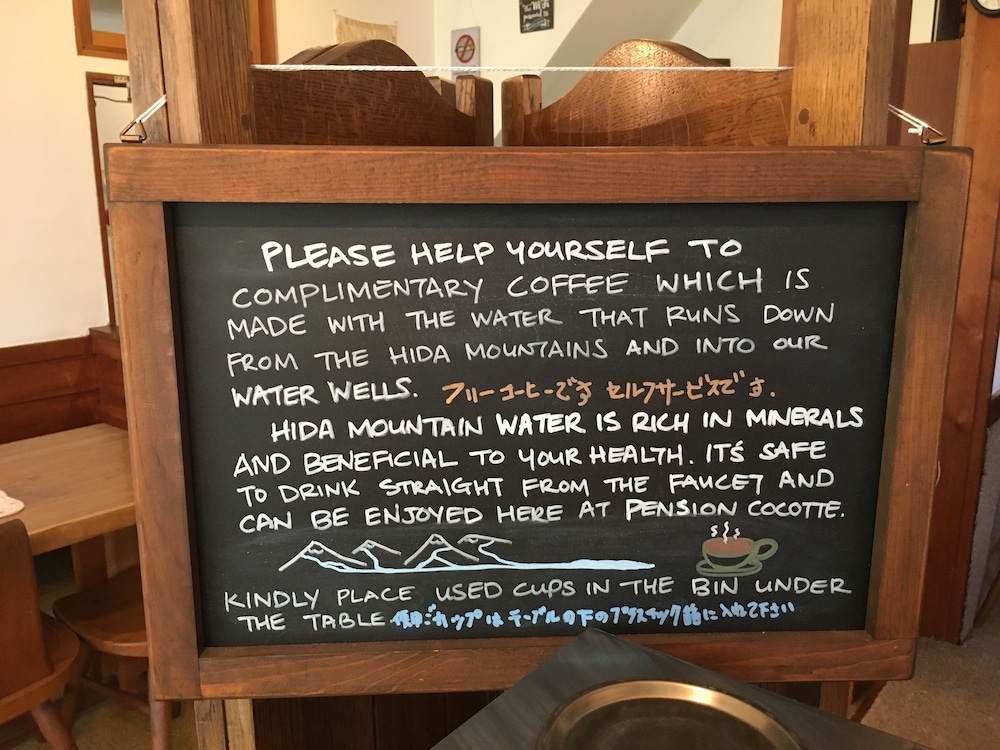 PLEASE HELP YOURSELF TO
COMPLIMENTARY COFFEE WHICH IS
MADE WITH THE WATER THAT RUNS DOWN
FROM THE HIDA MOUNTAINS AND INTO OUR
WATER WELLS. フリーコーヒーです セルフサービスです.
HIDA MOUNTAIN WATER IS RICH IN MINERALS
AND BENEFICIAL TO YOUR HEALTH. IT'S SAFE
TO DRINK STRAIGHT FROM THE FAUCET AND
CAN BE ENJOYED HERE AT PENSION COCOTTE.
KINDLY PLACE USED CUPS IN THE BIN UNDER
THE TABLE カップは テーブルの下のプラスチック に入れて下さい